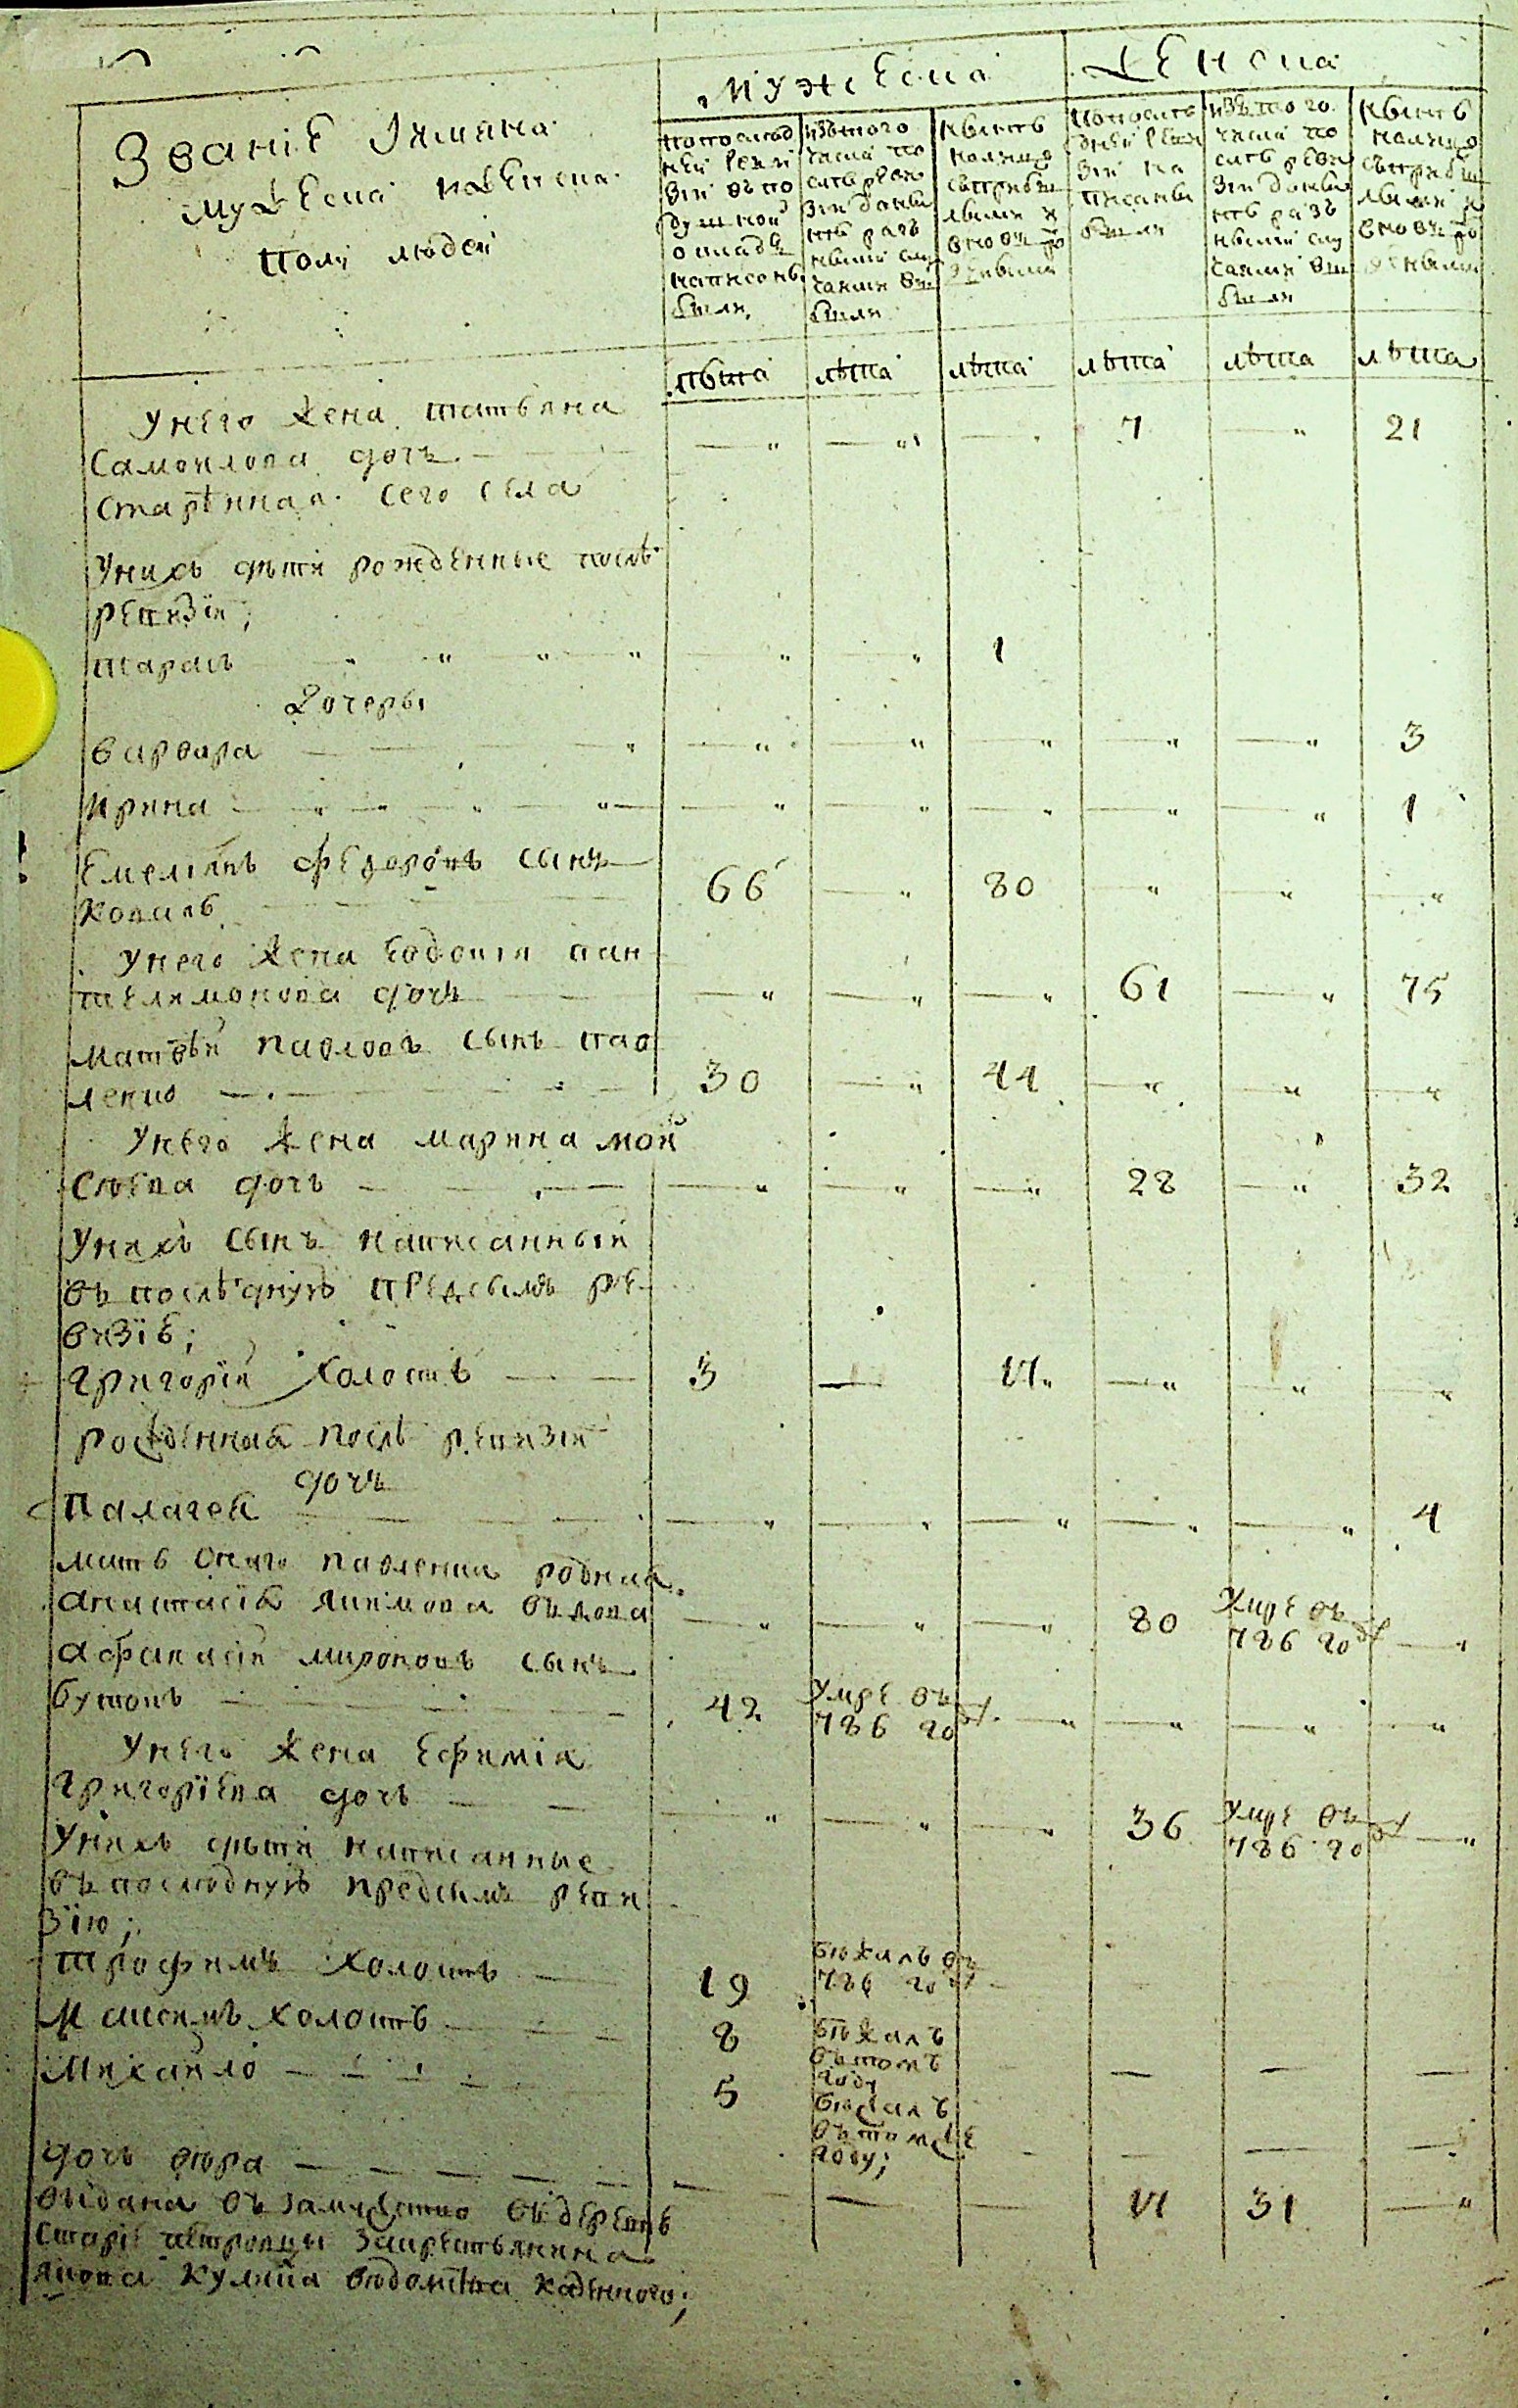 Мужеска
Женска
Званiе Имяна
мужеска иженска
полу людей
попослед
ней реви
зiи въпо
душной
окладъ
написаны
были,
изътого
числа по
слѣ реви
зiи доны
нѣ разъ
ными слу
чаями вы
были
нынѣ
налицо
съприбы
лыми и
вновь ро
ждеными
попослѣ
дней реви
зiи на
писаны
были
изътого
числа по
слѣ реви
зiи доны
нѣ разъ
ными слу
чаями вы
были
нынѣ
налицо
съприбы
лыми и
вновь ро
ждеными
лѣта лѣта лѣта лѣта лѣта лѣта
Унего жена татьяна
Самоилова дочь 7 21
старѣнная сего села
Унихъ дѣти рожденные послѣ
ревизiи;
тарасъ 1
Дочеры
варвара 3
Ирина 1
Емелiянъ федоровъ сынъ
Коваль 66 80
Унего жена Евдокiя пан
телимонова дочь 61 75
матвѣй павловъ сынъ пав
ленко 30 44
Унего жена марина мой
сѣева дочь 28 32
Унихъ сынъ написанный
въ послѣдную предсымъ ре
визiю;
григорiй холостъ 3 17
рожденная послѣ ревизiи
дочь
Палагея 4
мать онаго павленка родная
анастасiя якимова вдова 80 умре въ
786 году
афанасiй мироновъ сынъ
бутокъ 42 умре въ
786 году
Унего жена Ефимiя
григорiева дочь 36 умре въ
786 году
Унихъ дѣти написанные
въ последную предсымъ реви
зiю;
трофимъ холостъ 19 бѣжалъ въ
786 году
Максимъ холостъ 8 бѣжалъ
втомъ
году
Михайло 5 бѣжалъ
втомже
году;
дочь вѣра 17 31
выдана въ замужство въ деревнѣ
старе петровцы закрестьянина
якова кулиша вѣдомства казеного;